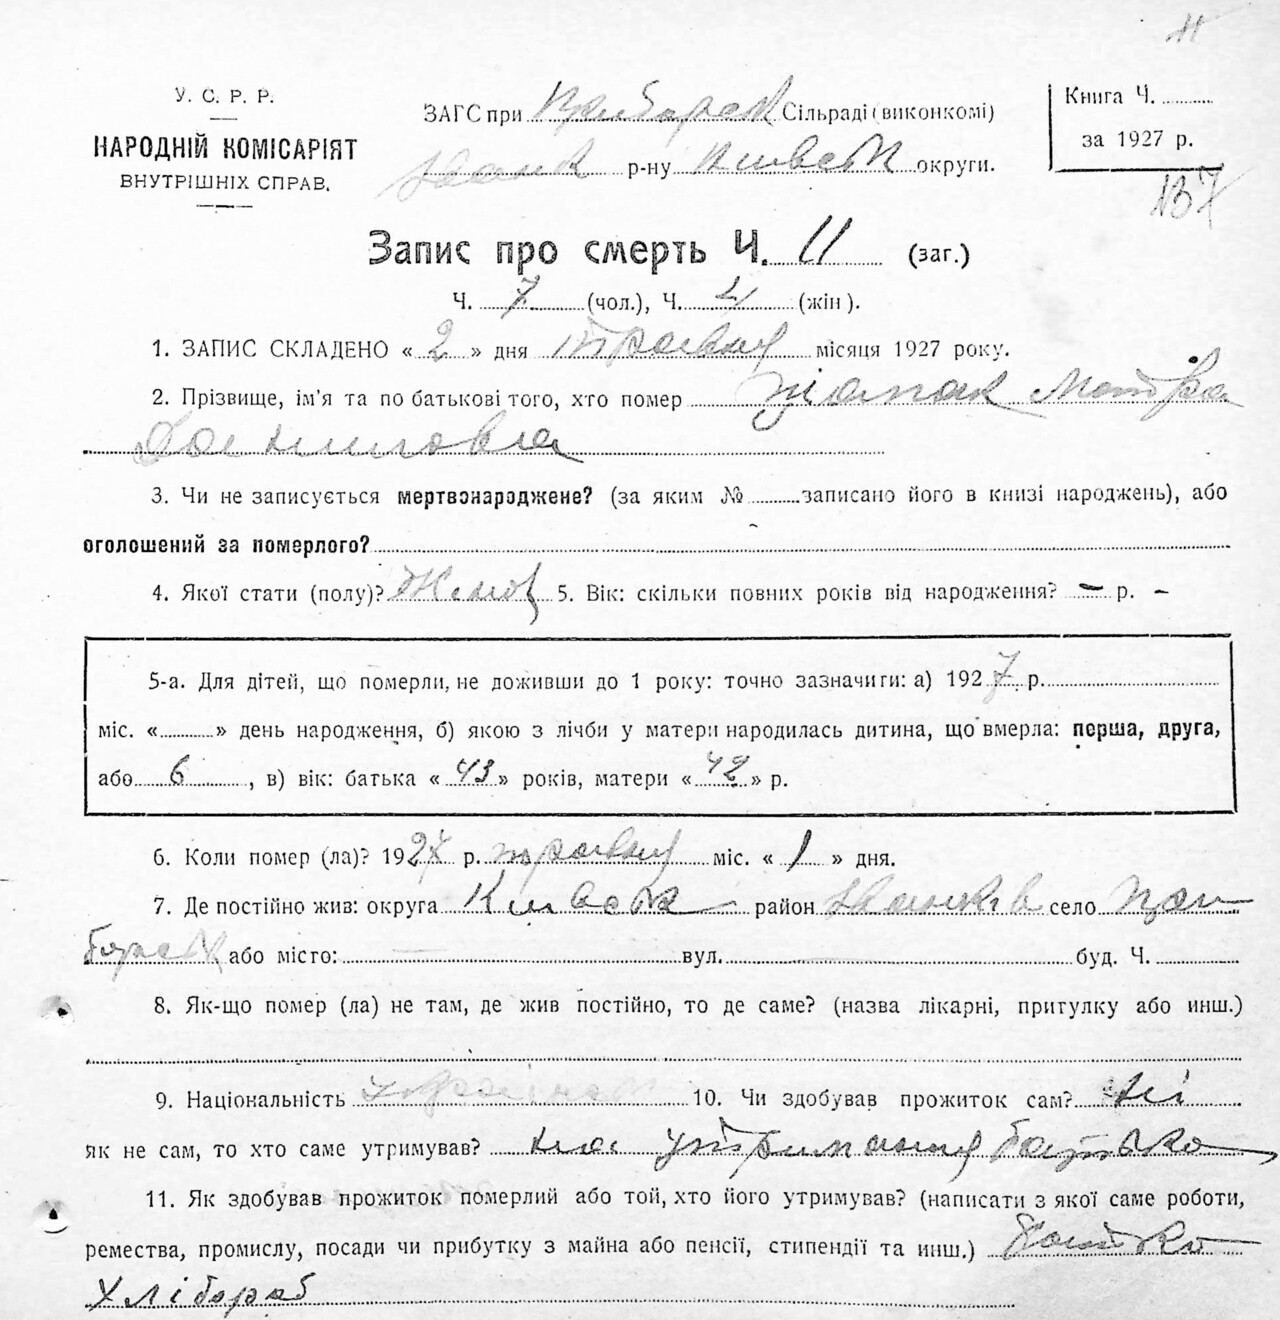 11
У. С. Р. Р.
НАРОДНІЙ КОМІСАРІЯТ
ВНУТРІШНІХ СПРАВ.
ЗАГС при Приборськ Сільраді (виконкомі)
Іванк р-ну Київськ округи.
Книга Ч. ..........
за 1927 р.
137
Запис про смерть Ч. 11 (заг.)
Ч. 7 (чол.), Ч. 4 (жін).
1. ЗАПИС СКЛАДЕНО « 2 » дня травня місяця 1927 року.
2. Прізвище, ім'я та по батькові того, хто помер Мотря
Даниловна
3. Чи не записується мертвонароджене? (за яким № ........ записано його в книзі народжень), або
оголошений за померлого?
4. Якої стати (полу)? Жіноч 5. Вік: скільки повних років від народження? – р. –
5-а. Для дітей, що померли, не доживши до 1 року: точно зазначити: а) 1927 р.
міс. «..........» день народження, б) якою з лічби у матери народилась дитина, що вмерла: перша, друга,
або 6 , в) вік: батька « 43 » років, матери « 42 » р.
6. Коли помер (ла)? 1927 р. травня міс. « 1 » дня.
7. Де постійно жив: округа Київськ район Іванків село При
борськ або місто: — вул. — буд. Ч.
8. Як-що помер (ла) не там, де жив постійно, то де саме? (назва лікарні, пригулку або инш.)
9. Національність українськ 10. Чи здобував прожиток сам? Ні
як не сам, то хто саме утримував? на утриманню батько
11. Як здобував прожиток померлий або той, хто його утримував? (написати з якої саме роботи,
ремества, промислу, посади чи прибутку з майна або пенсії, стипендії та инш.) батько
хлібороб